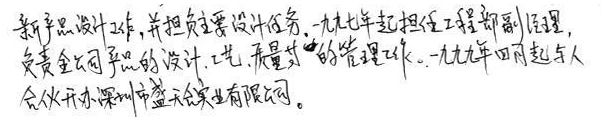 新产品设计工作,并担负主要设计任务。一九九七年起担任工程部副经理,
负责全公司产品的设计、工艺、质量等的管理工作。一九九九年四月起与人
合伙开办深圳市盛天合实业有限公司。